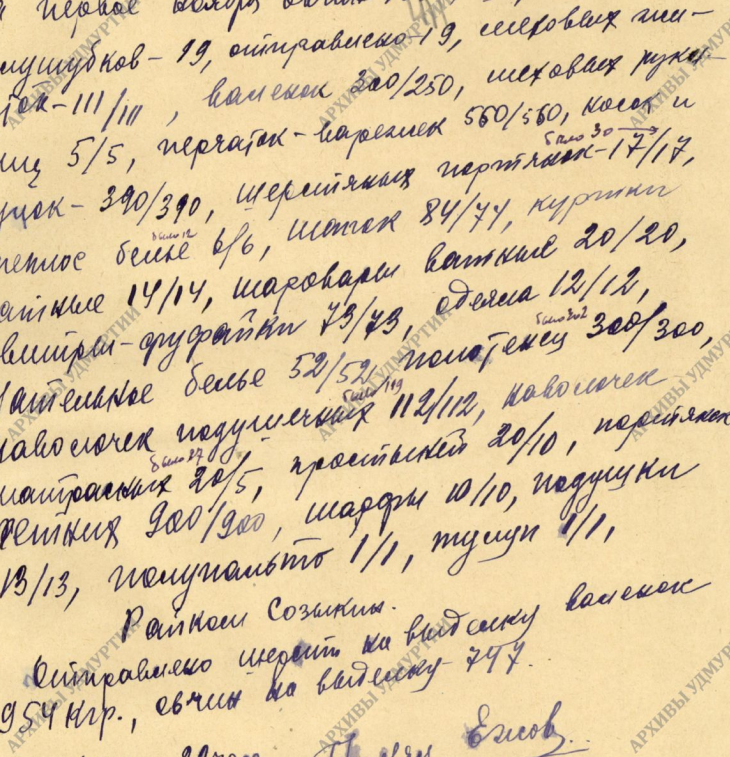 первое ноября
лушубков - 19, отправлено - 19, меховых жи-
ток - 111/111, валенок 300/250, меховых рука-
виц 5/5, перчаток - варежек 560/560, носок и
было 30
чулок - 390/390, шерстяных портянок - 17/17,
было 12
теплое белье 6/6, шапок 84/74, куртки
атные 14/14, шаровары ватные 20/20,
витры - фуфайки 73/73, одеяла 12/12,
было 302
нательное белье 52/52, полотенец 300/300,
было 119
наволочек подушечных 112/112, наволочек
было 27
матрасных 20/5, простыней 20/10, портянок
летних 900/900, шарфы 10/10, подушки
13/13, полупальто 1/1, тулуп 1/1,
Райком Созыкин.
Отправлено шерсти на выделку валенок
954 кгр., овчин на выделку - 747.
Ежов
АРХИВЫ УДМУРТИИ